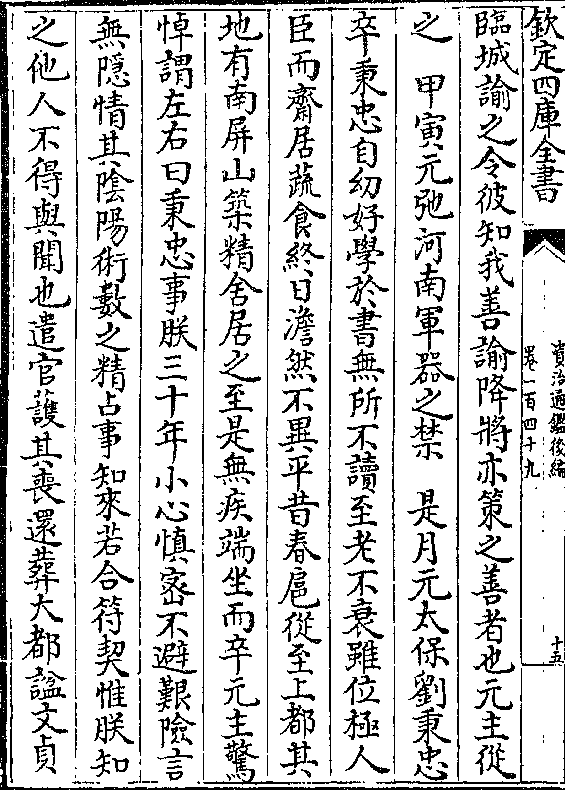 欽定四庫全書
資治通鑑後編
卷一百四十九
十五
臨城諭之令彼知我善諭降將亦策之善者也元主從
之　甲寅元弛河南軍器之禁　是月元太保劉秉忠
卒秉忠自幼好學於書無所不讀至老不衰雖位極人
臣而齋居蔬食終日澹然不異平昔春扈從至上都其
地有南屏山築精舍居之至是無疾端坐而卒元主驚
悼謂左右曰秉忠事朕三十年小心慎宻不避艱險言
無隠情其陰陽術數之精占事知來若合符契惟朕知
之他人不得與聞也遣官護其喪還葬大都諡文貞